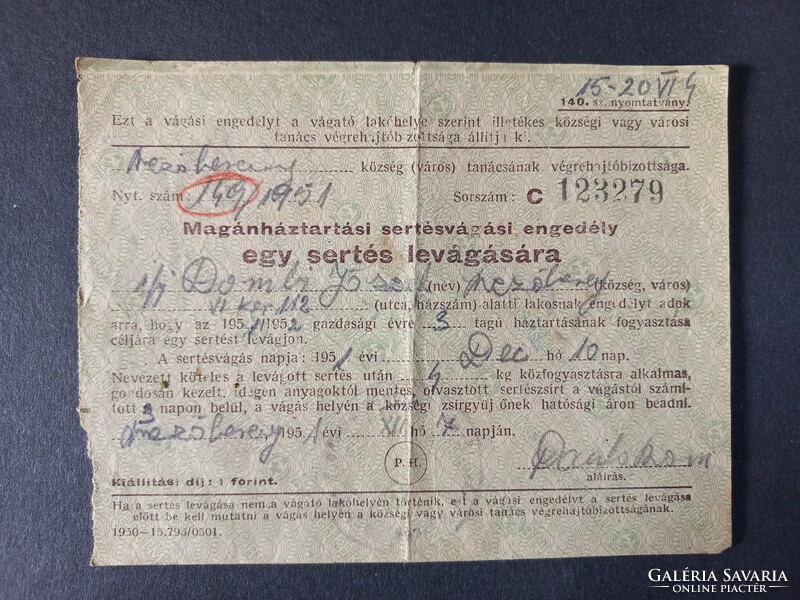 15-20 VI 4
140. sz. nyomtatvány.
Ezt a vágási engedélyt a vágató lakóhelye szerint illetékes községi vagy városi
tanács végrehajtóbizottsága állítja ki.
Mezőberény község (város) tanácsának végrehajtóbizottsága.
Nyt. szám: 149/1951 Sorszám: C 123279
Magánháztartási sertésvágási engedély
egy sertés levágására
ifj Dombi József (név) Mezőberény (község, város)
VI ker 112 (utca, házszám) alatti lakosnak engedélyt adok
arra, hogy az 1951/1952 gazdasági évre 3 tagú háztartásának fogyasztása
céljára egy sertést levágjon.
A sertésvágás napja: 1951 évi Dec hó 10 nap.
Nevezett köteles a levágott sertés után 4 kg közfogyasztásra alkalmas,
gondosan kezelt, idegen anyagoktól mentes, olvasztott sertészsírt a vágástól számí-
tott 3 napon belül, a vágás helyén a községi zsírgyüjtőnek hatósági áron beadni.
Mezőberény 1951 évi XI hó 7 napján.
P. H.
aláírás.
Kiállítási díj: 1 forint.
Ha a sertés levágása nem a vágató lakóhelyén történik, ezt a vágási engedélyt a sertés levágása
előtt be kell mutatni a vágás helyén a községi vagy városi tanács végrehajtóbizottságának.
1950—15.795/0501.
GALÉRIA SAVARIA
ONLINE PIACTÉR